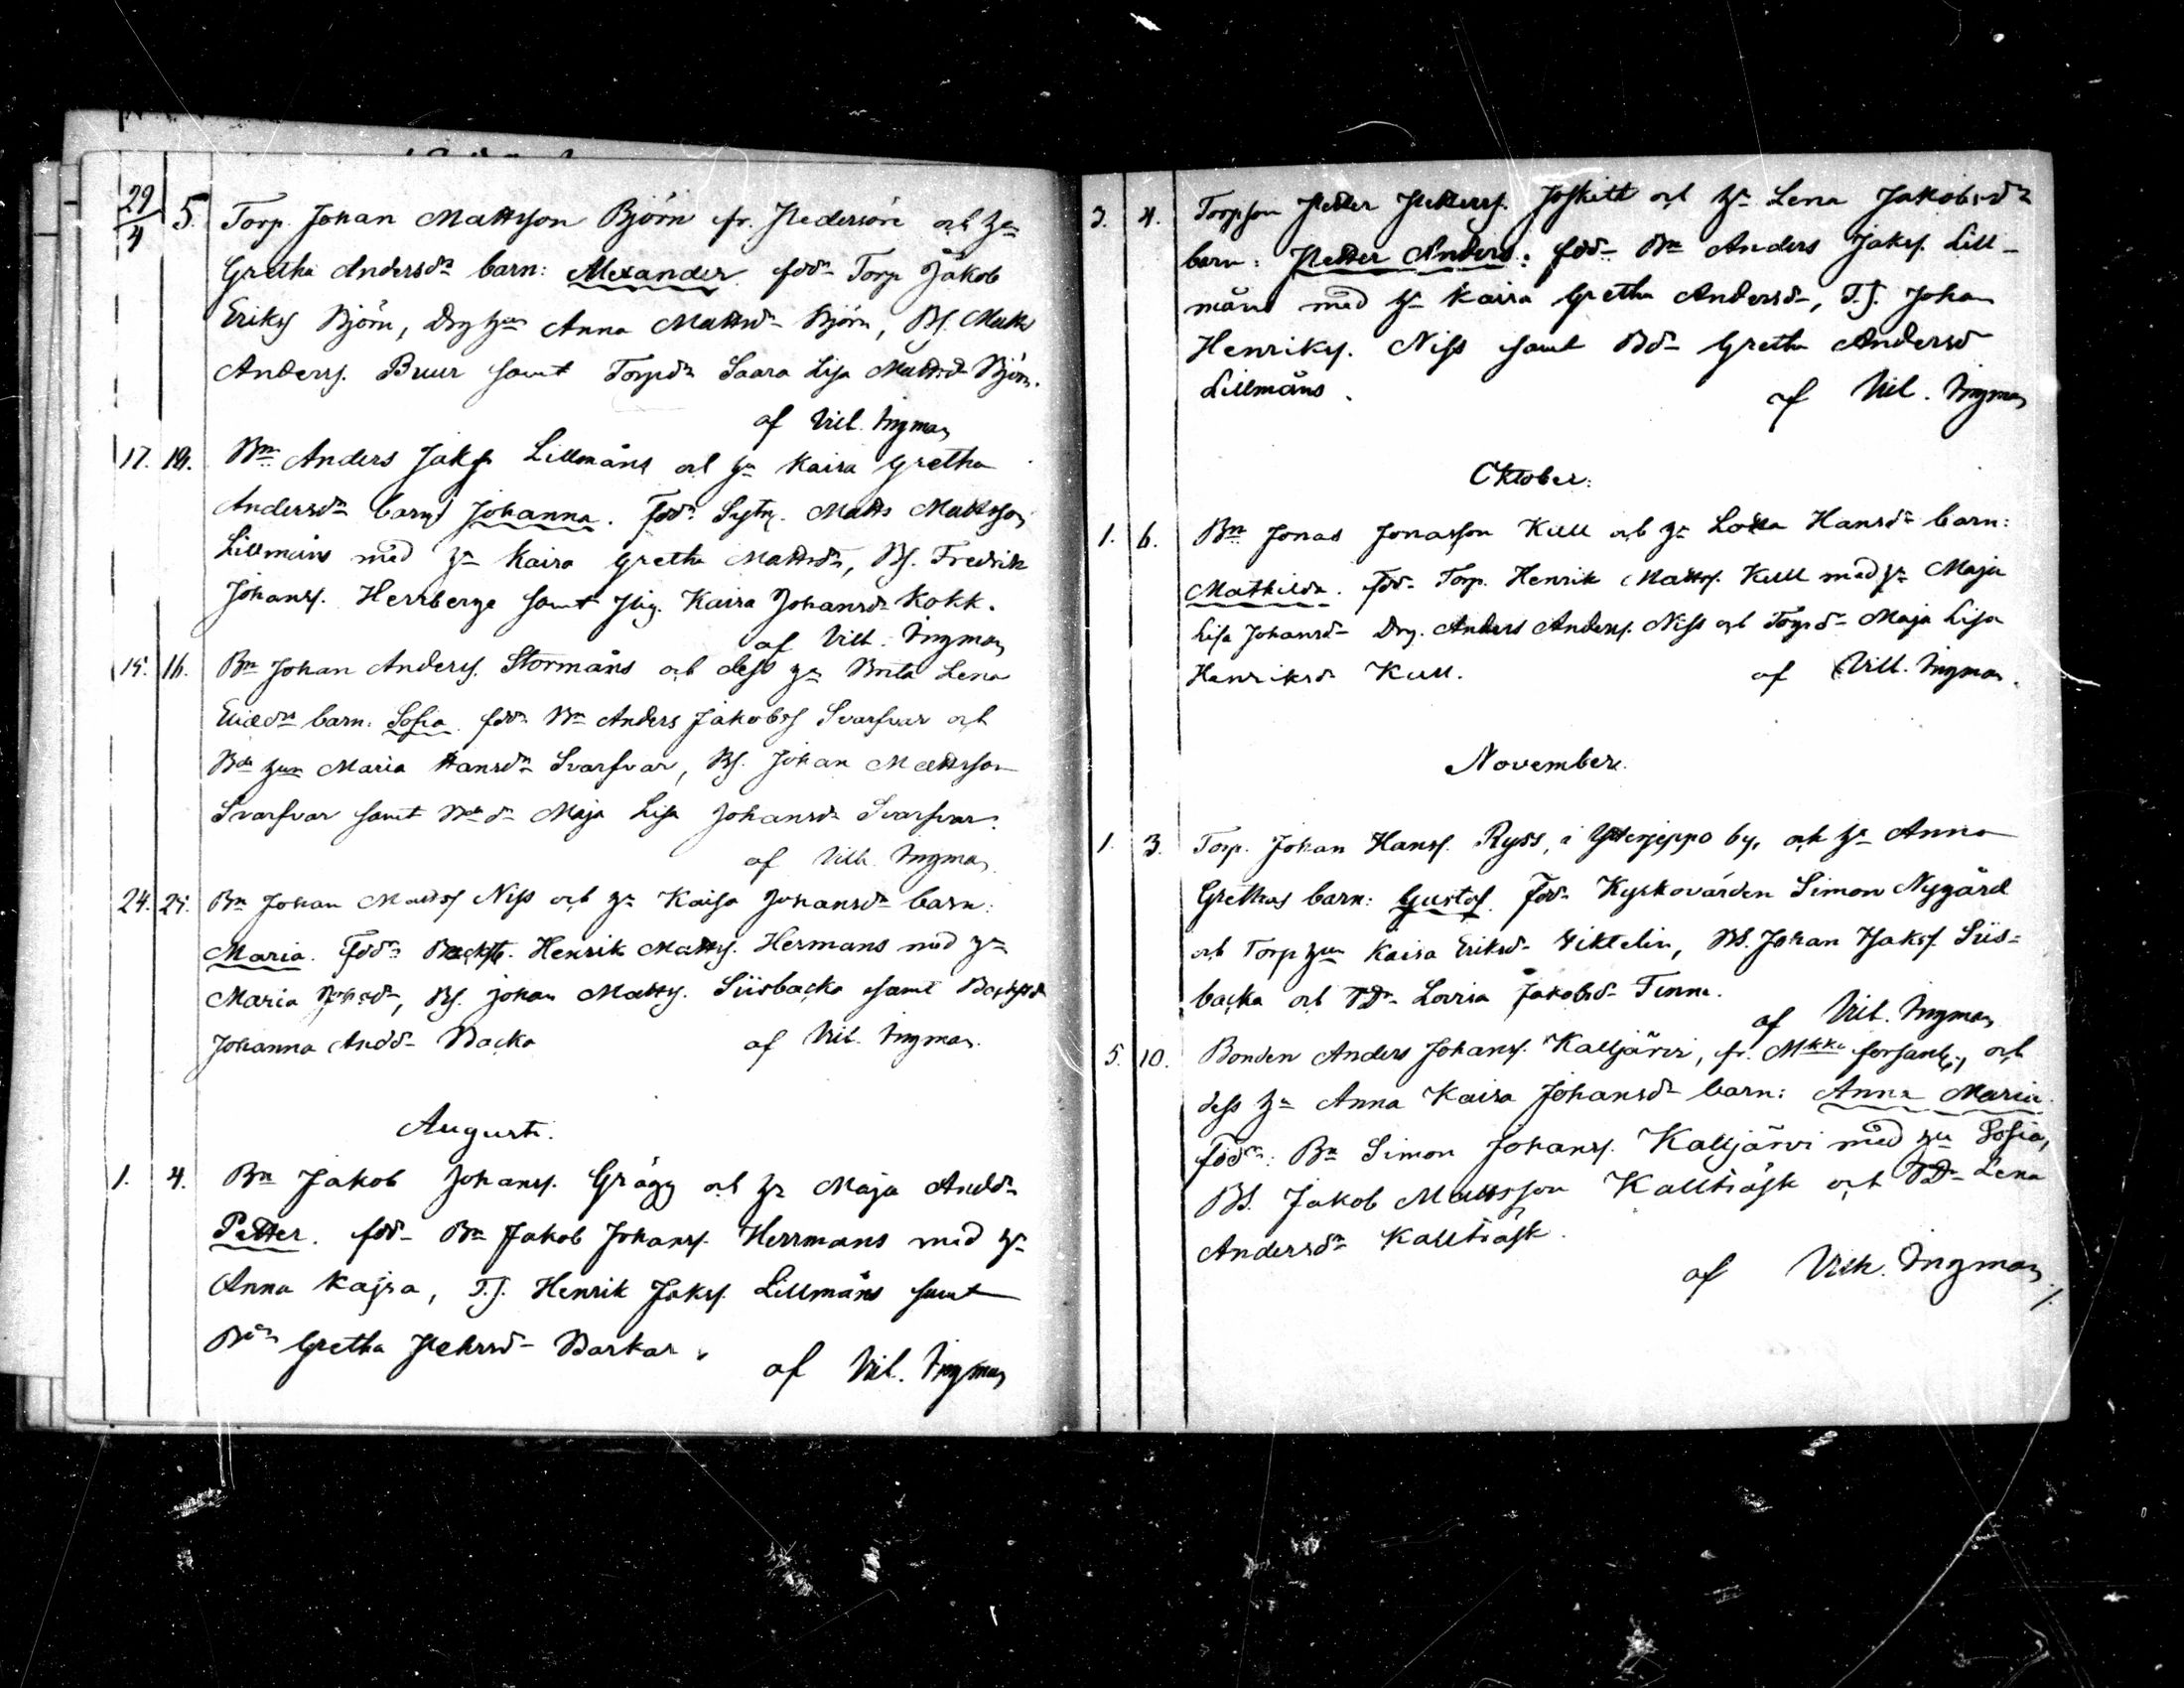 29/4 5. Torp. Johan Mattsson Björn fr. Pedersöre och h:u
Gretha Andersd:r barn: Alexander. fdd:r Torp Jakob
Eriks. Björn, Drghu Anna Mattsd:r Björn, Bs. Matts
Anderss. Buur samt Torpd:r Saara Lisa Mattsd:r Björn.
af Vilh. Ingman
17. 19. Bn Anders Jaks. Lillmåns och hu Kaisa Gretha
Andersd:r barn Johanna. Fdd:r Sytn. Matts Mattsson
Lillmåns med hu Kaisa Gretha Mattsd:r, Bs. Fredrik
Johans. Herrberga samt Pig. Kaisa Johansd:r Kokk.
af Vilh. Ingman
15. 16. Bn Johan Anderss. Stormåns och dess hu Brita Lena
barn: Sofia. fdd:r Bn Anders Jakobss Svarfvar och
Bdehun Maria Hansd:r Svarfvar, Bs. Johan Mattsson
Svarfvar samt Bd:r Maja Lisa Johansd:r Svarfvar.
af Vilh. Ingman
24. 25. Bn Johan Mattss Niss och hu Kaisa Johansd:r barn:
Maria. Fdd:r Henrik Mattss. Hermans med hu
Maria, Bs. Johan Mattss. Siisbacka samt
Johanna Andd:r Backa af Vilh. Ingman.
Augusti.
1. 4. Bn Jakob Johanss. Grägg och hu Maja Andd:r
Petter. fdd:r Bn Jakob Johanss. Herrmans med hu
Anna Kajsa, T.J. Henrik Jakss. Lillmåns samt
Gretha Pehrsd:r Barkar. af Vilh. Ingman
3. 4. Torpson Petter Petterss. och hu Lena Jakobsd:r
barn: Petter Anders: fdd:r Bn Anders Jakss. Lill-
måns med hu Kaisa Gretha Andersd:r, T.J. Johan
Henrikss. Niss samt Bd:r Gretha Andersd
Lillmåns. af Vilh. Ingman
Oktober:
1. 6. Bn Jonas Jonasson Kull och hu Lovisa Hansd:r barn:
Mathilda. Fdd:r Torp. Henrik Mattss. Kull med hu Maja
Lisa Johansd:r Drg. Anders Anderss. Niss och Torpd:r Maja Lisa
Henriksd:r Kull. af Vilh. Ingman.
November.
1. 3. Torp. Johan Hanss. Ryss, i Ytterjeppo by, och hu Anna
Grethas barn: Gustaf. Fdd:r Kyrkovärden Simon Nygård
och Torphun Kaisa Eriksd:r Viktelin, Bs. Johan Jakss. Siis-
backa och Bd:r Lovisa Jakobsd:r Finne.
af Vilh. Ingman
5. 10. Bonden Anders Johanss. Kalljärvi, fr. forsaml., och
dess hu Anna Kaisa Johansd:r barn: Anna Maria.
fdd:r: Bn Simon Johanss. Kalljärvi med hu Sofia,
Bs. Jakob Mattsson Kallträsk och Bd:r Lena
Andersd:r Kallträsk.
af Vilh. Ingman